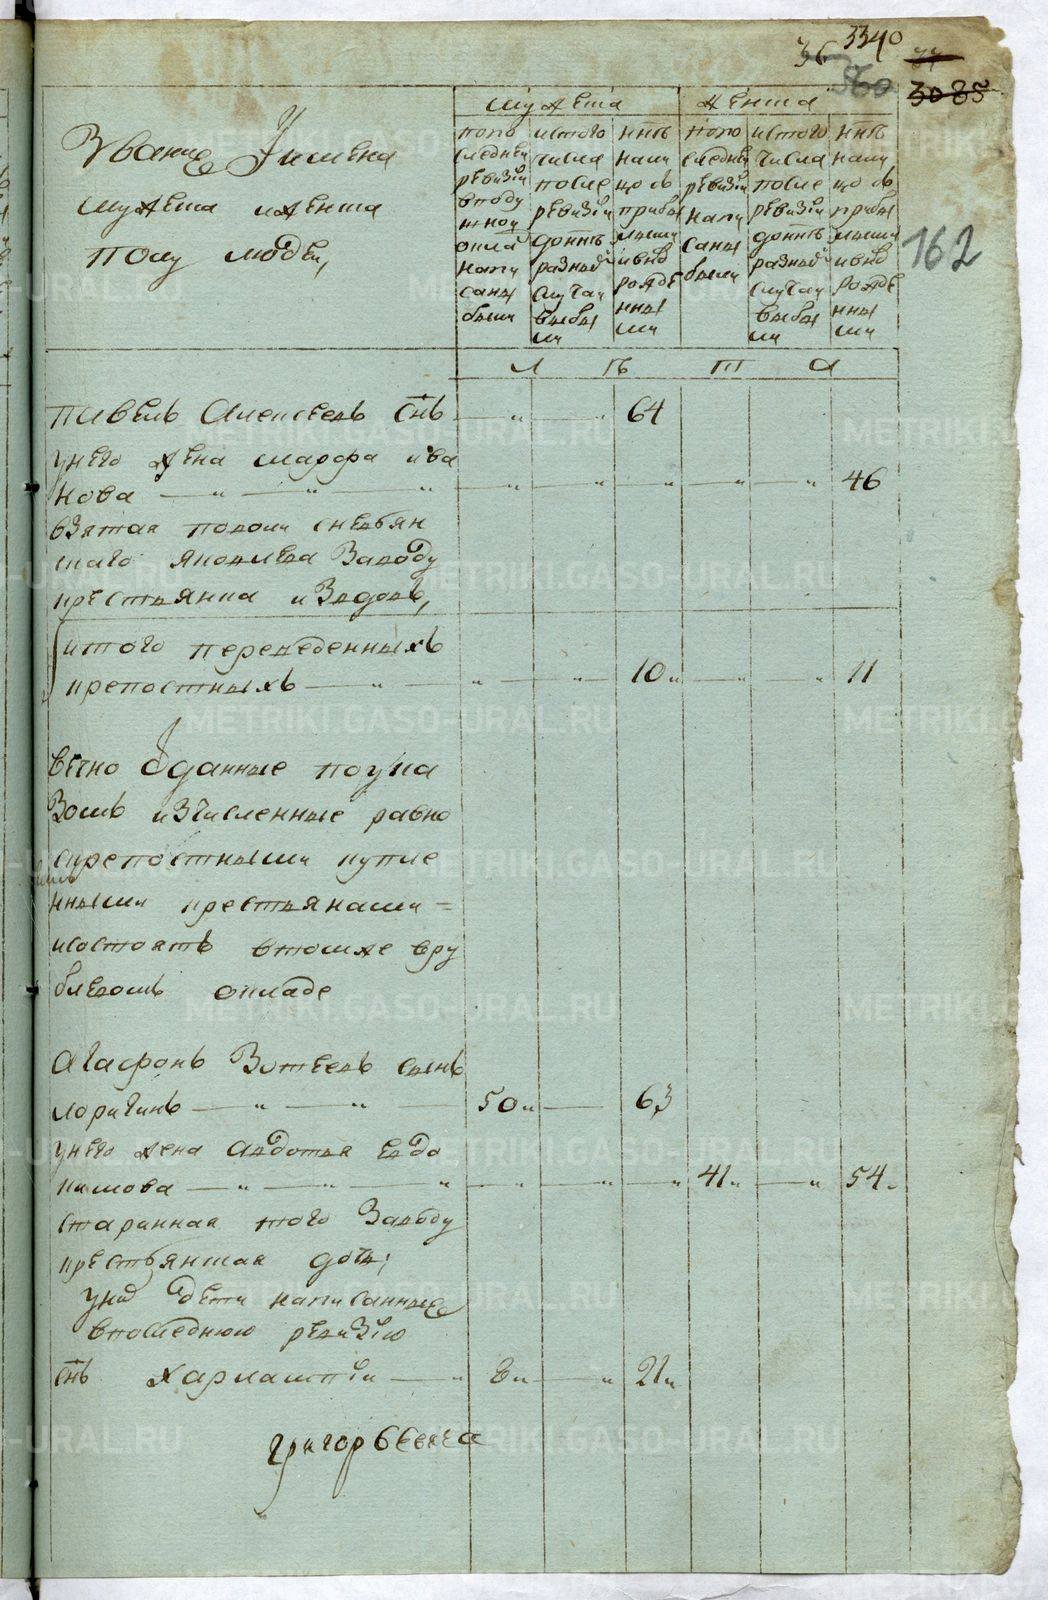 3340
36
360
77
3085
162
Звание Имена
мужеска и женска
полу людей,
мужеска
женска
попо
следней
ревизіи
вподу
шной
окла
напи
саны
были
истого
числа
после
ревизіи
донне
разный
случаи
выбы
ли
ннѣ
нали
цо съ
прибы
лыми
ивнѡ
рожде
нны
ми
попо
следней
ревизіи
напи
саны
были
истого
числа
после
ревизіи
донне
разный
случаи
выбы
ли
ннѣ
нали
цо съ
прибы
лыми
ивнѡ
рожде
нны
ми
л ѣ т а
Павелъ Алексеевъ снъ 64
унего жена марфа ива
нова 46
взятая
скаго Яковлева Заводу
крестьянка извдовъ,
итого переведенныхъ
крепостныхъ 10 11
вечно отданные поука
зомъ изчисленные равно
скрепостными купле
нными крестьянами =
исостоятъ втомже вру
блевомъ окладе
Агафонъ Зотеевъ сынъ
лоригинъ 50 63
унего жена авдотья евдо
кимова 41 54
старинная того Заводу
крестьянская дочь;
уних дети написанные
впоследнюю ревизію
снъ харлампіи 8 21
григор
METRIKI.GASO-URAL.RU